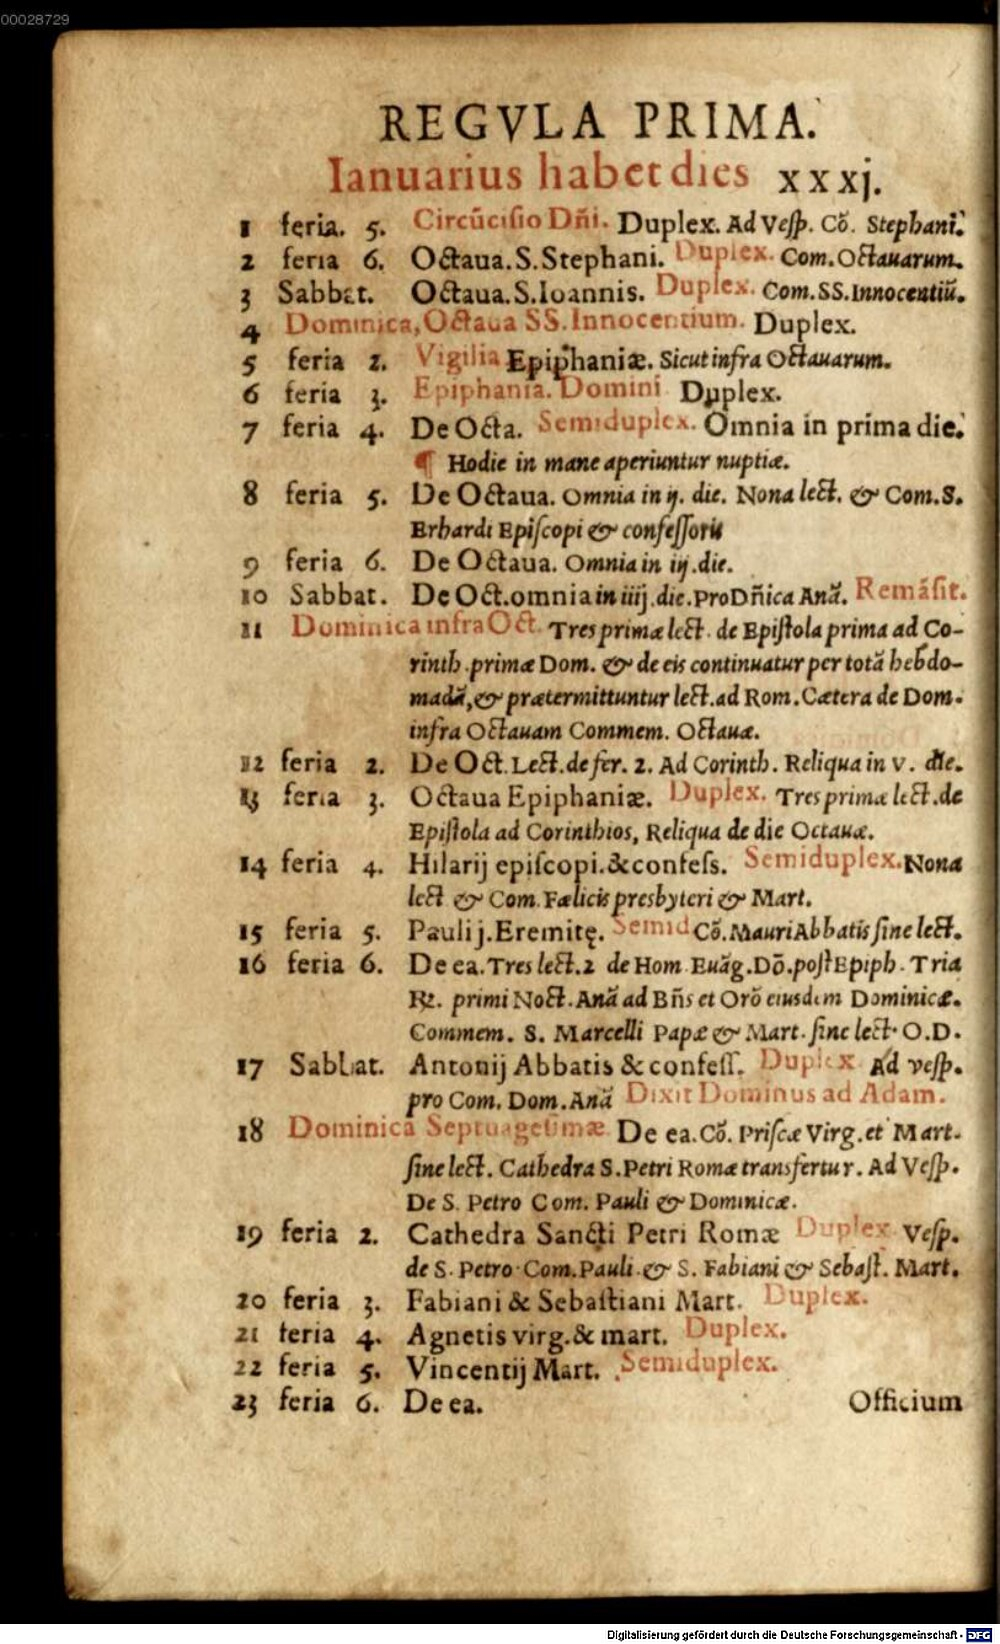 00028729
REGVLA PRIMA.
Ianuarius habet dies xxxj.
1 feria. 5. Circũcisio Dñi. Duplex. Ad Vesp. Cõ. Stephani.
2 feria 6. Octaua. S. Stephani. Duplex. Com. Octauarum.
3 Sabbat. Octaua. S. Ioannis. Duplex. Com. SS. Innocentiũ.
4 Dominica, Octaua SS. Innocentium. Duplex.
5 feria 2. Vigilia Epiphaniæ. Sicut infra Octauarum.
6 feria 3. Epiphania. Domini Duplex.
7 feria 4. De Octa. Semiduplex. Omnia in prima die.
¶ Hodie in mane aperiuntur nuptiæ.
8 feria 5. De Octaua. Omnia in ij. die. Nona lect. & Com. S.
Erhardi Episcopi & confessoris
9 feria 6. De Octaua. Omnia in iij. die.
10 Sabbat. De Oct. omnia in iiij. die. Pro Dñica Anã. Remãsit.
11 Dominica infra Oct. Tres primæ lect. de Epistola prima ad Co-
rinth. primæ Dom. & de eis continuatur per totã hebdo-
madã, & prætermittuntur lect. ad Rom. Cætera de Dom.
infra Octauam Commem. Octauæ.
12 feria 2. De Oct. Lect. de fer. 2. Ad Corinth. Reliqua in v. die.
13 feria 3. Octaua Epiphaniæ. Duplex. Tres primæ lect. de
Epistola ad Corinthios, Reliqua de die Octauæ.
14 feria 4. Hilarij episcopi. & confess. Semiduplex. Nona
lect & Com. Fælicis presbyteri & Mart.
15 feria 5. Pauli j. Eremitę. Semid Cõ. Mauri Abbatis sine lect.
16 feria 6. De ea. Tres lect. 2 de Hom. Euãg. Dõ. post Epiph. Tria
℞. primi Noct. Anã ad Bñs et Orõ eiusdem Dominicæ.
Commem. S. Marcelli Papæ & Mart. sine lect. O. D.
17 Sabbat. Antonij Abbatis & confess. Duplex Ad vesp.
pro Com. Dom. Anã Dixit Dominus ad Adam.
18 Dominica Septuagesimæ De ea. Cõ. Priscæ Virg. et Mart.
sine lect. Cathedra S. Petri Romæ transfertur. Ad Vesp.
De S. Petro Com. Pauli & Dominicæ.
19 feria 2. Cathedra Sancti Petri Romæ Duplex Vesp.
de S. Petro. Com. Pauli. & S. Fabiani & Sebast. Mart.
20 feria 3. Fabiani & Sebastiani Mart. Duplex.
21 feria 4. Agnetis virg. & mart. Duplex.
22 feria 5. Vincentij Mart. Semiduplex.
23 feria 6. De ea. Officium
Digitalisierung gefördert durch die Deutsche Forschungsgemeinschaft - DFG